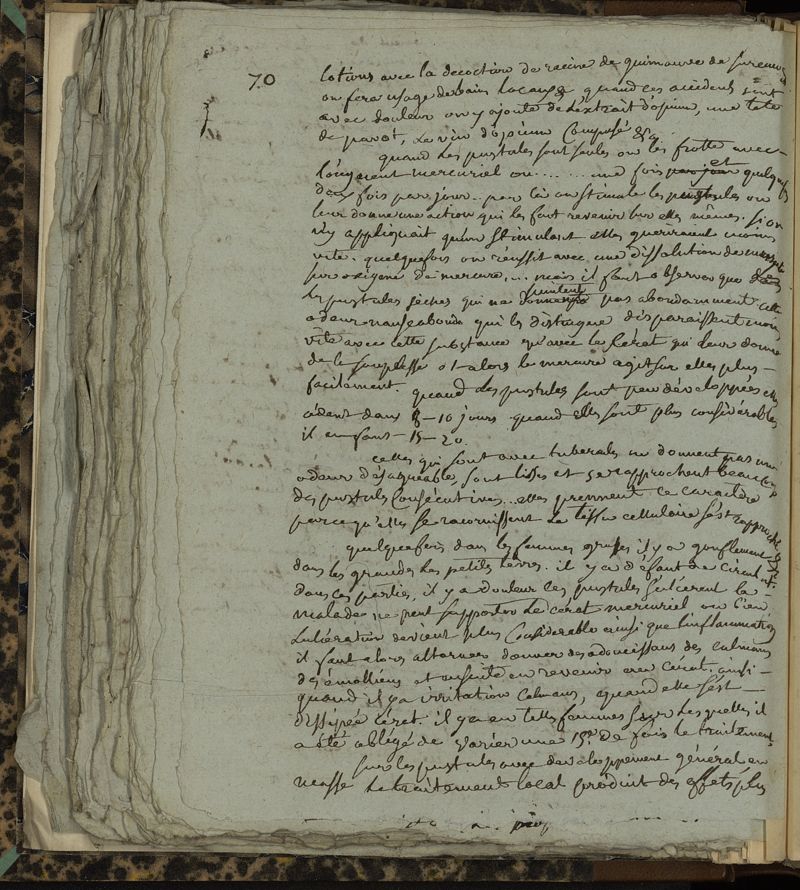 70
lotions avec la decoction de racine de guimauve de sureau
on fera usage de bains locaux quand ces accidens sont
avec douleur on y ajoute de l'extrait d'opium, une tete
de pavot, le vin d'opium Composé &c.
quand les pustules sont seules on les frotte avec
l'onguent mercuriel ou ...... une fois par jour et quelquefs
deux fois par jour .. par là on stimule les pustules on
leur donne une action qui les fait revenir sur elles mêmes. si on
n'y appliquait qu'un stimulant elles guerriraient moins
vite. quelquefois on réussit avec une dissolution de
sur oxigené de mercure, ... mais il faut observer que
les pustules seches qui ne suintent pas abondamment cette
odeur nauseabonde qui les distingue disparaissent moins
vite avec cette substance qu'avec le Cérat qui leur donne
de la souplesse et alors le mercure agit sur elles plus
facilement. quand les pustules sont peu développées elles
cèdent dans 8-10 jours quand elles sont plus considérables
il en faut 15-20.
celles qui sont avec tubercules ne donnent pas une
odeur désagreable, sont lisses et se rapprochent beaucoup
des pustules Consécutives .. elles prennent ce caractère
parce qu'elles se racornissent le tissu cellulaire s'est rapproché
quelquefois dans les femmes grosses il y a gonflement
dans les grandes les petites levres. il y a défaut de circulat.
dans ces parties, il y a douleur ces pustules s'ulcerent la
malade ne peut supporter le cerat mercuriel ou bien
l'ulcération devient plus Considerable ainsi que l'inflammation
il faut alors alterner donner des adoucissans des calmans
des émolliens et ensuite en revenir au Cérat. ainsi
quand il y a irritation Calmans, quand elle s'est
dissipée Cérat. il y a eu telles femmes sur lesquelles il
a été obligé de varier une 15e de fois le traitement
sur les pustules avec developpement général en
masse le traitement local produit des effets plus